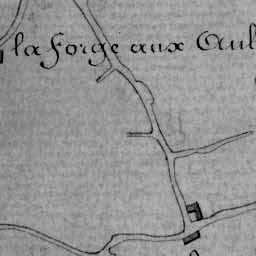 la Forge aux Aul